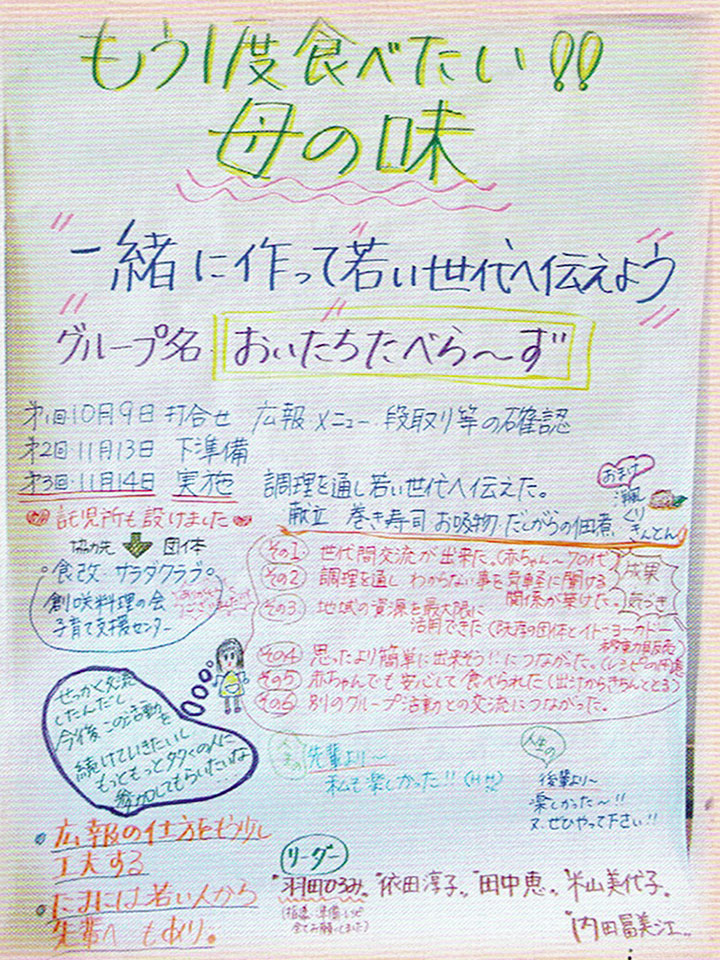 もう1度食べたい!!
母の味
一緒に作って若い世代へ伝えよう
グループ名 おいたちたべら〜ず
第1回10月9日 打合せ 広報 メニュー・段取り等の確認
第2回11月13日 下準備
第3回・11月14日 実施 調理を通し若い世代へ伝えた。
献立 巻き寿司 お吸物・だしがらの佃煮
おまけ
くり
きんとん
託児所も設けました
協力先 団体
食改・サラダクラブ
創咲料理の会
子育て支援センター
成果
気づき
その1 世代間交流が出来た。(赤ちゃん〜70代)
その2 調理を通し わからない事を気軽に聞ける
関係が築けた。
その3 地域の資源を最大限に
活用できた(既存の団体とイトーヨーカドー
その4 思ったより簡単に出来そう!につながった。(レシピの用意
その5 赤ちゃんでも安心して食べられた(出汁からきちんととる)
その6 別のグループ活動との交流につながった。
せっかく交流
したんだし
今後この活動を
続けていきたいし
もっともっと多くの人に
参加してもらいたいな
先輩より〜
私も楽しかった!!
人生の
後輩より〜
楽しかった〜!!
又、ぜひやって下さい!!
広報の仕方をもう少し
工夫する
たまには若い人から
先輩へ もあり。
リーダー
羽田ひろみ 依田淳子 田中恵 米山美代子
内田富美江